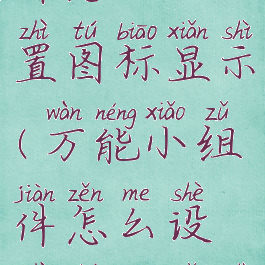 zhì tú biāo xiǎn shì
置图标显示
wàn néng xiǎo zǔ
(万能小组
jiàn zěn me shè
件怎么设